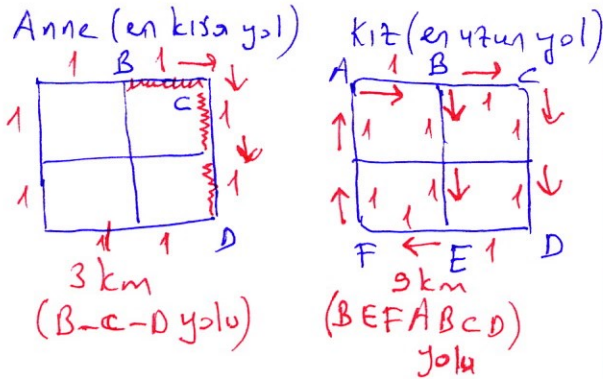 Anne (en kısa yol)
1 B 1
1 C 1
1 1
1 1 D
3 km
(B-C-D yolu)
Kız (en uzun yol)
A 1 B C
1 1 1 1
1 1 1
1
F E 1 D
9 km
(BEFABCD)
yolu